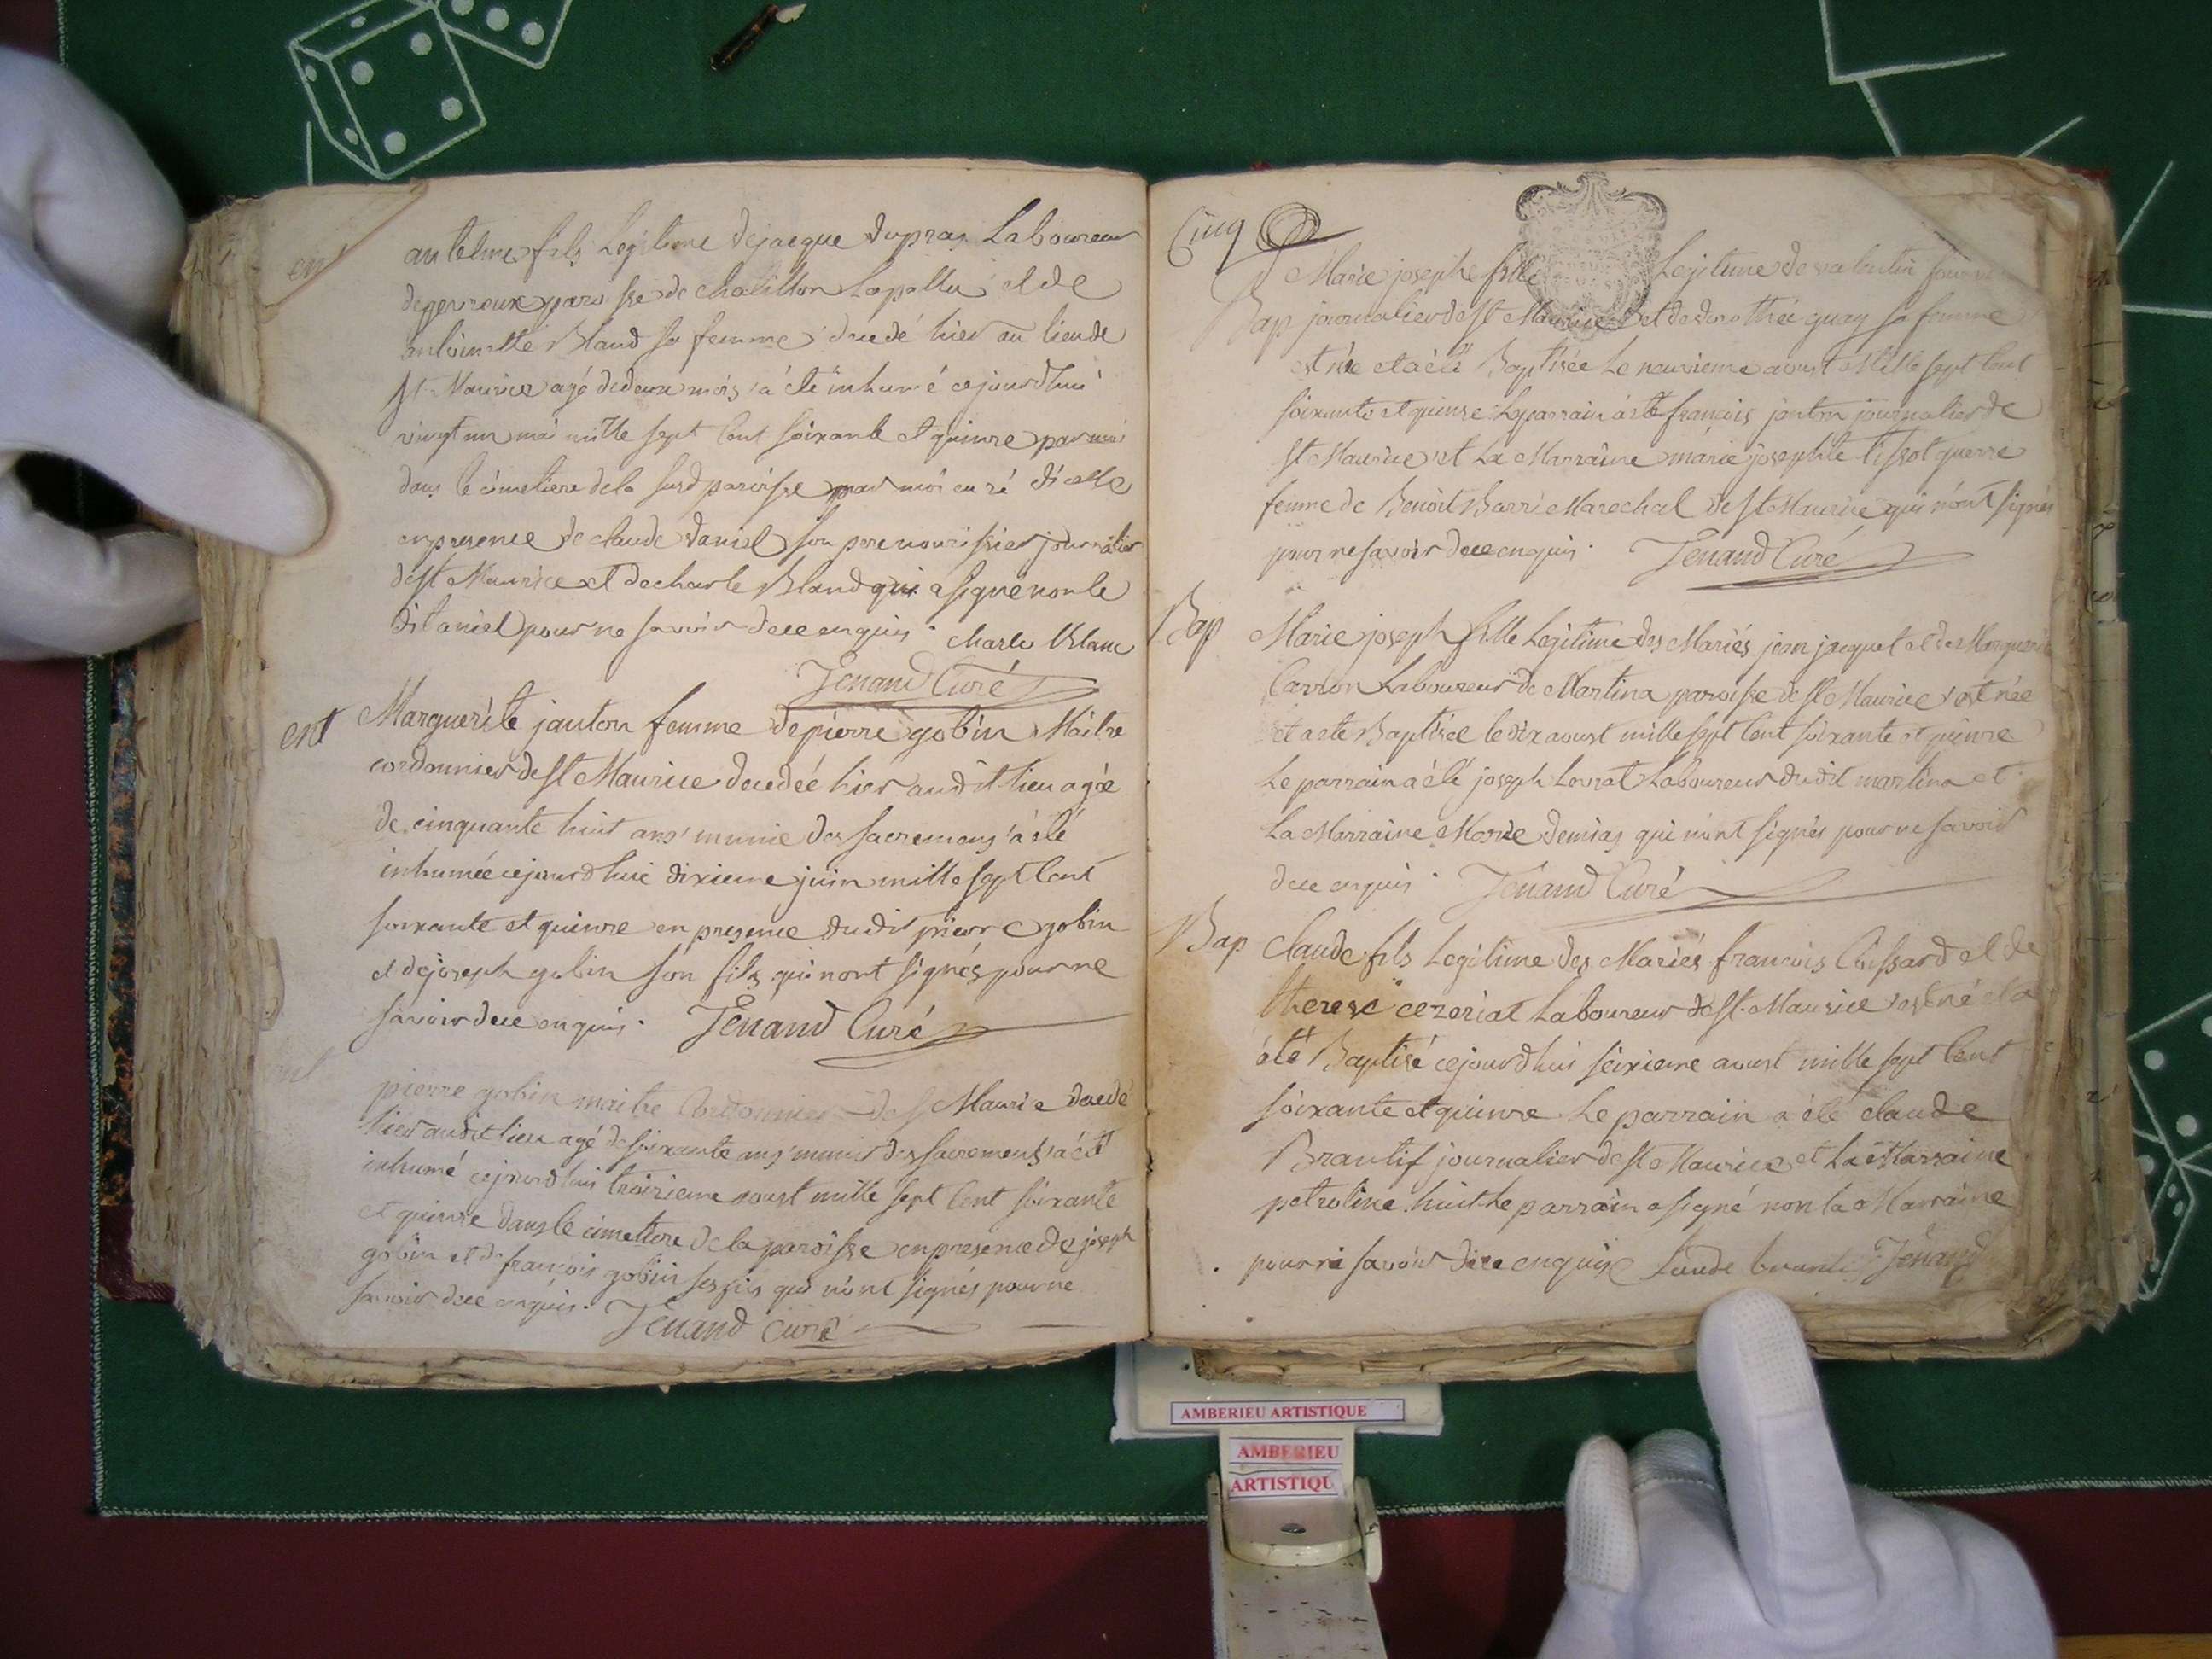 ent
antelme fils Legitime de jacque dupras Laboureur
de gevreux paroisse de chatillon Lapallu et de
antoinette Bland sa femme decedé hier au lieu de
St Maurice agé de deux mois a été inhumé cejourdhui
vingt un mai mille sept Cent soixante et quinze par moi
dans le cimetiere de la susd paroisse par moi curé d'icelle
en presence de claude daniel son pere nourissier journalier
de St Maurice et de charle Bland qui a signé non le
dit daniel pour ne savoir de ce enquis. Charle Blanc
Jenand Curé
ent
Marguerite janton femme de pierre gobin Maitre
cordonnier de St Maurice decedeé hier audit lieu agée
de cinquante huit ans munie des sacremens a été
inhumée cejourdhui dixieme juin mille sept Cent
soixante et quinze en presence dudit pierre gobin
et de joseph gobin son fils qui nont signés pour ne
savoir de ce enquis. Jenand Curé
ent
pierre gobin maitre Cordonnier de St Maurice decedé
hier audit lieu agé de soixante ans munis des sacremens a été
inhumé cejourdhui troizieme aoust mille sept Cent soixante
et quinze dans le cimetiere de la paroisse en presence de joseph
gobin et de francois gobin ses fils qui n'ont signés pour ne
savoir de ce enquis. Jenand Curé
Cinq
Bap
Marie josephe fille Legitime de valentin
journalier de St Maurice et de dorothée guay sa femme
est née et a été Baptisée Le neuvieme aoust Mille sept Cent
soixante et quinse Le parrain a été francois janton journalier de
St Maurice et La Marraine marie josephte tissot guerre
femme de Benoit Barri Marechal de St Maurice qui n'ont signés
pour ne savoir de ce enquis. Jenand Curé
Bap
Marie joseph fille Legitime des Mariés jean jacquet et de Marguerite
Carron Laboureur de Martina paroisse de St Maurice est née
et a été Baptisée le dix aoust mille sept Cent soixante et quinze
Le parrain a été joseph Levrat Laboureur dudit martina et
La Marraine Marie Demias qui n'ont signés pour ne savoir
de ce enquis. Jenand Curé
Bap
Claude fils Legitime des Mariés francois Cuissard et de
therese cezeriat Laboureur de St. Maurice est né et a
été Baptisé cejourdhui seixieme aoust mille sept Cent
soixante et quinze Le parrain a été claude
Brantif journalier de St Maurice et La Marraine
petroline huit Le parrain a signé non La Marraine
pour ne savoir de ce enquise Jenand
AMBERIEU ARTISTIQUE
AMBERIEU
ARTISTIQU